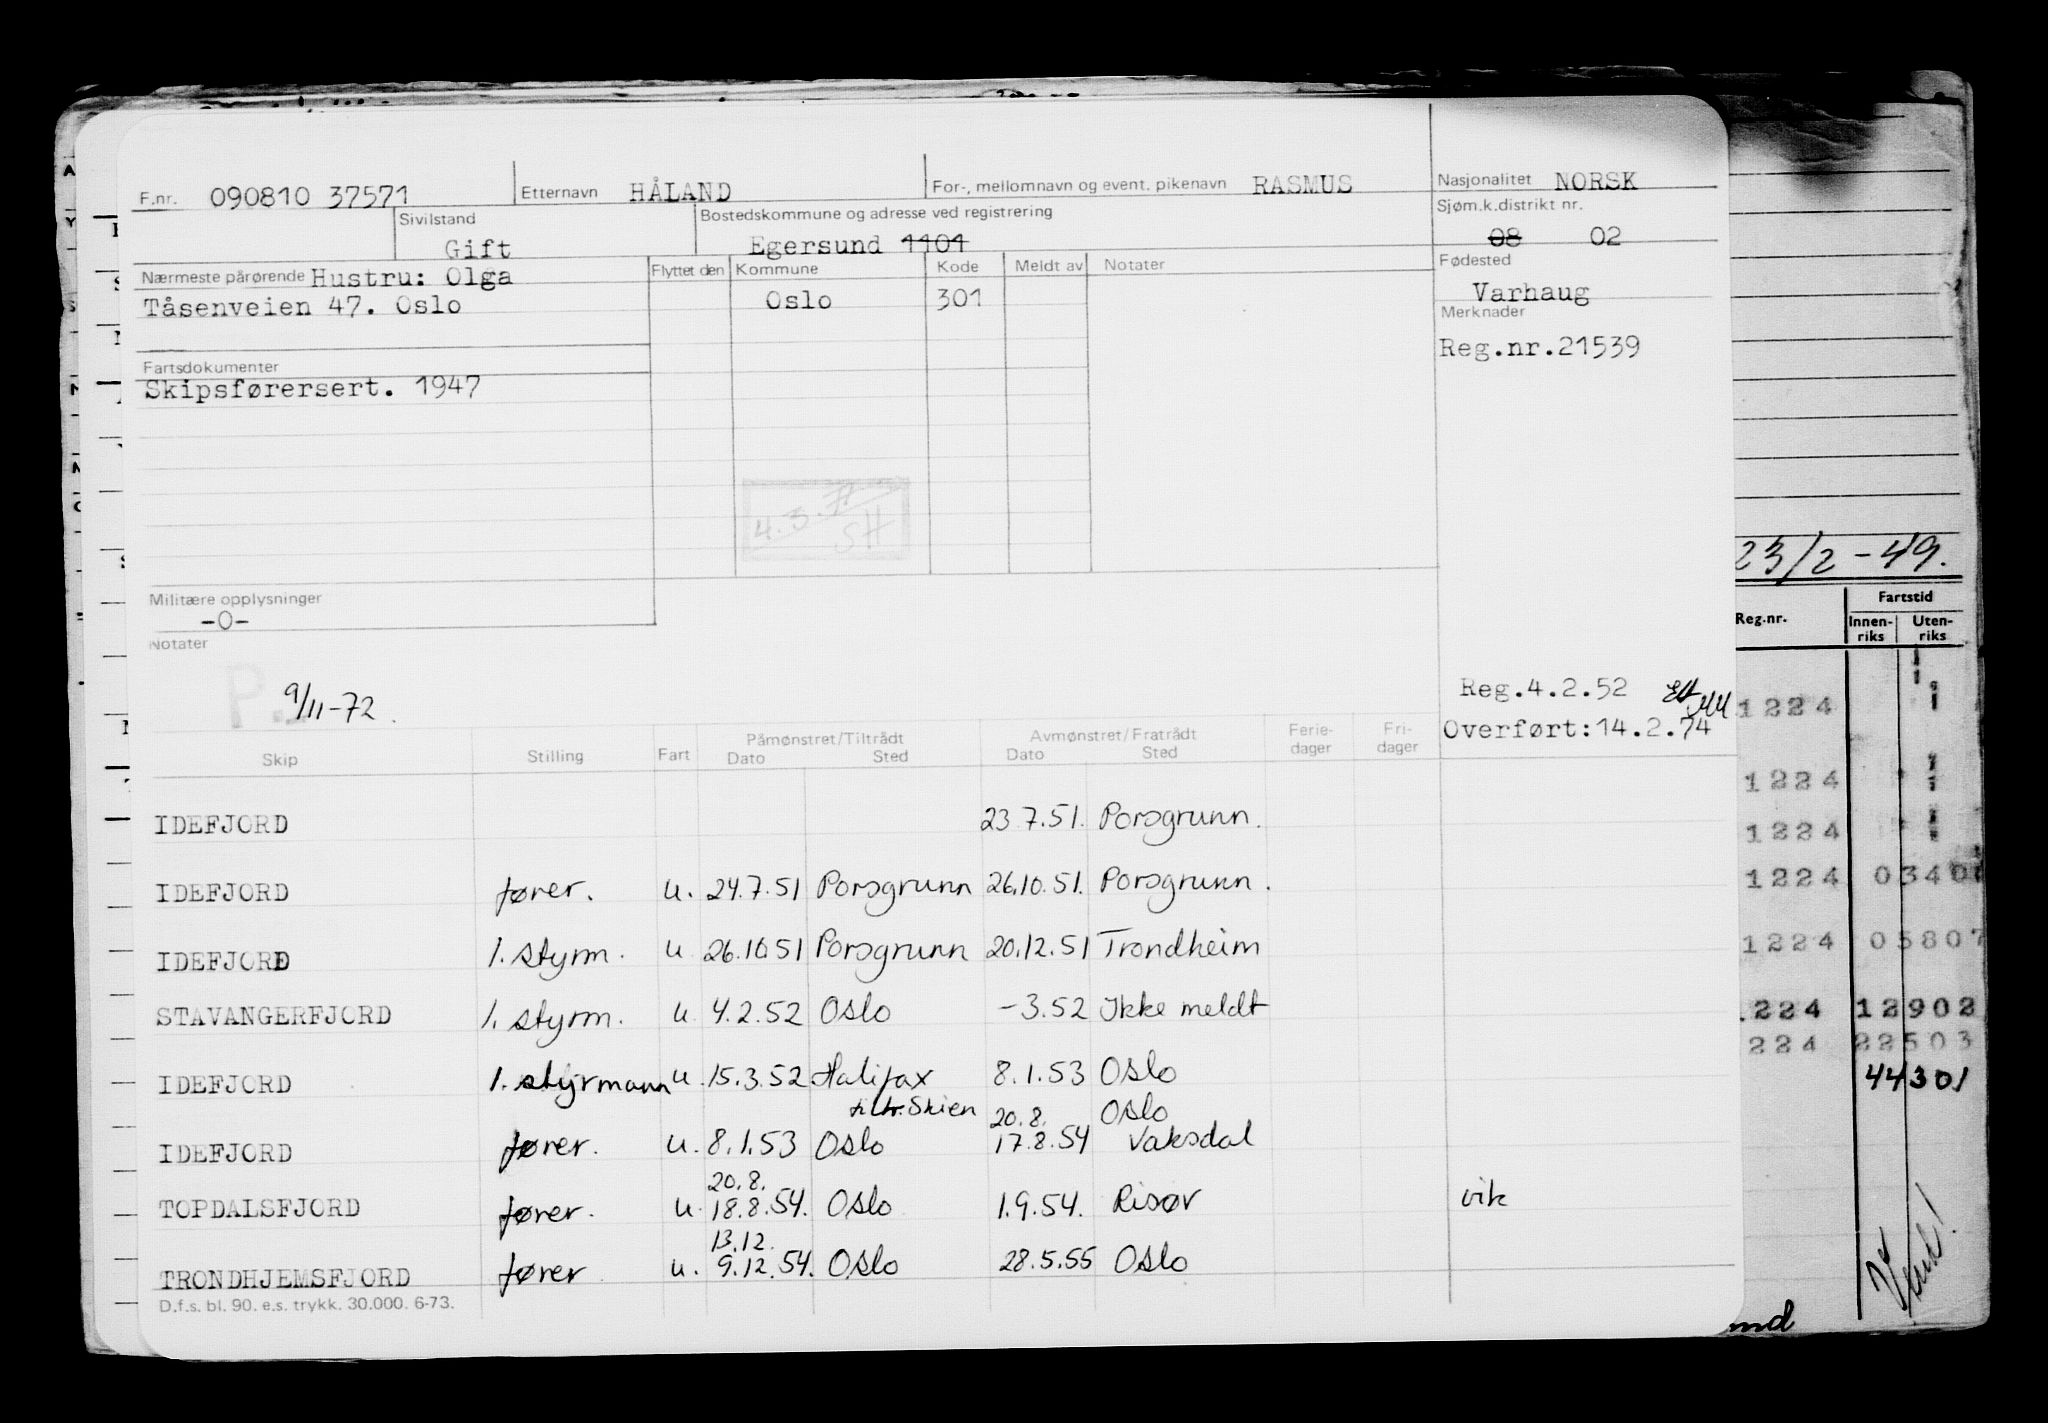 F.nr. 090810 37571 Etternavn HÅLAND For-, mellomnavn og event. pikenavn RASMUS Nasjonalitet NORSK
Sivilstand Gift Bostedskommune og adresse ved registrering Egersund 1101 Sjøm.k.distrikt nr. 08 02
Nærmeste pårørende Hustru: Olga Flyttet den Kommune Kode Meldt av Notater Fødested
Tåsenveien 47. Oslo Oslo 301 Varhaug
Merknader
Reg.nr.21539
Fartsdokumenter
Skipsførersert. 1947
4.3.
SH
23/2-49.
Militære opplysninger
-0-
Notater
Reg.nr. Fartstid
Innen-riks Uten-riks
P.
9/11-72
Reg.4.2.52
Overført:14.2.74
1224
Skip Stilling Fart Påmønstret/Tiltrådt Dato Sted Avmønstret/Fratrådt Dato Sted Ferie-dager Fri-dager
1224
IDEFJORD 23.7.51. Porsgrunn.
1224
IDEFJORD fører. u. 24.7.51 Porsgrunn 26.10.51. Porsgrunn.
1224 0340
IDEFJORD 1. styrm. u 26.10.51 Porsgrunn 20.12.51 Trondheim
1224 05807
STAVANGERFJORD 1. styrm. u 4.2.52 Oslo -3.52 Ikke meldt
224 12902
224 22503
IDEFJORD 1. styrmann u. 15.3.52 Halifax tiltr. Skien 8.1.53 Oslo
44301
IDEFJORD fører. u. 8.1.53 Oslo 20.8. Oslo 17.8.54 Vaksdal
TOPDALSFJORD fører. u. 20.8. 18.8.54. Oslo 1.9.54. Risør vik
TRONDHJEMSFJORD fører u. 13.12. 9.12.54. Oslo 28.5.55 Oslo
D.f.s. bl. 90. e.s. trykk. 30.000. 6-73.